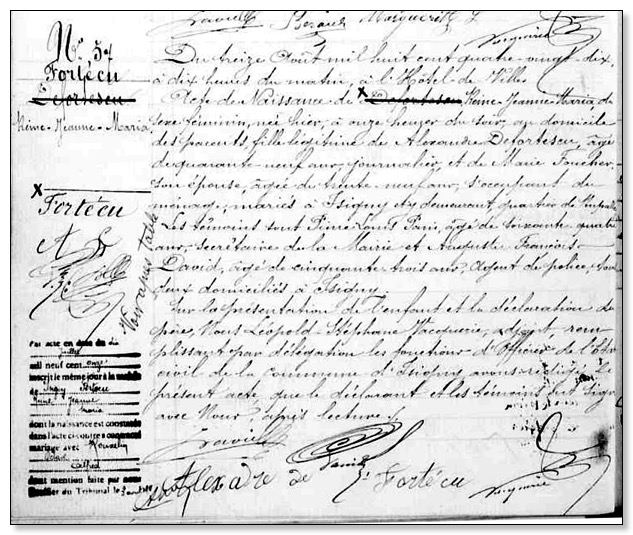 N° 57
Fortécu
Defortescu
Reine-Jeanne-Maria
Fortécu
Voir après table
Du treize Août mil huit cent quatre vingt dix,
à dix heures du matin, à l'Hôtel de Ville
Acte de Naissance de Defortescu Reine-Jeanne-Maria de
sexe féminin, née hier, à onze heures du soir, au domicile
des parents, fille légitime de Alexandre Defortescu, âgé
de quarante neuf ans, journalier, et de Marie Foucher,
son épouse, âgée de trente neuf ans, s'occupant du
ménage, mariés à Isigny et y demeurant, quartier de
Les témoins sont Pierre Louis Paris, âgé de soixante quatre
ans, secrétaire de la Mairie et Auguste François
David, âgé de cinquante trois ans, Agent de police, tous
deux domiciliés à Isigny.
Sur la présentation de l'enfant et la déclaration du
père, Nous Léopold Stéphane Vacquerie, adjoint rem
plissant par délégation les fonctions d'Officier de l'État
civil de la commune d'Isigny avons rédigé le
présent acte, que le déclarant et les témoins ont signé
avec Nous, après lecture.
Par acte en date du dix
juillet
mil neuf cent onze
inscrit le même jour à la
de
Reine Jeanne
Maria
dont la naissance est constatée
dans l'acte ci-contre a contracté
mariage avec
Alfred
dont mention faite par nous
Greffier du Tribunal le
David
Alexadre de Fortécu